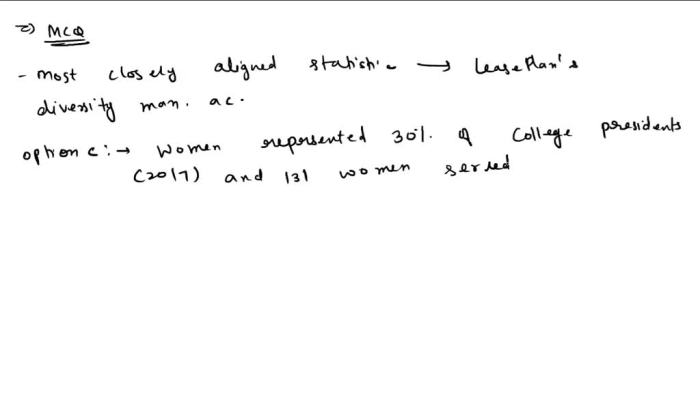 2) MCQ
- Most closely aligned statistic → LeasePlan's
diversity man. ac.
option c: → Women represented 30% of College presidents
(2017) and 131 women served